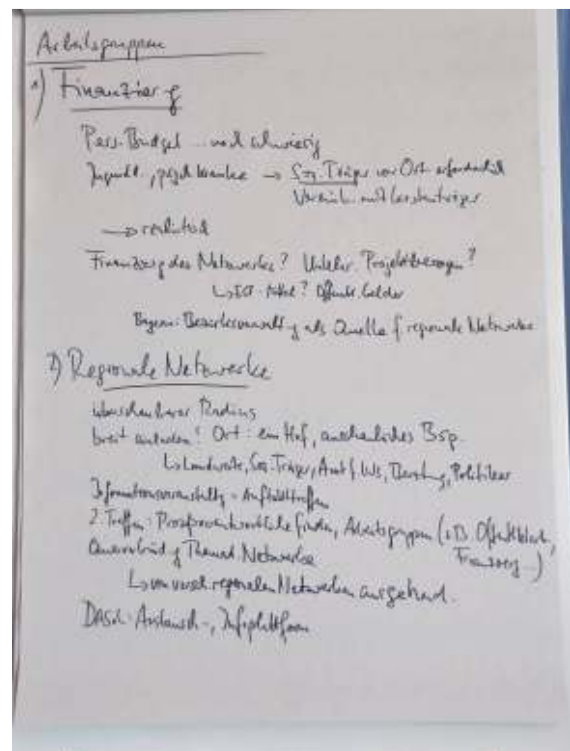 Arbeitsgruppen
1) Finanzierg
Pers. Budget ... noch schwierig
Jugendl., psych kranke → Soz. Träger vor Ort erforderlich
mit Kostenträger
→
Finanzierg des Netzwerks? Projektbezogen?
↳ Mittel? öffentl. Gelder
Bayern: Bezirksverwaltg als Quelle f. regionale Netzwerke
2) Regionale Netzwerke
überschaubarer Radius
breit einladen! Ort: ein Hof, anschauliches Bsp.
↳ Landwirte, Soz. Träger, Amt f. Beratung, Politiker
Informationsveranstaltg = Auftakttreffen
2. Treffen: finden, Arbeitsgruppen (z.B. Öffentlichk.,
Finanzierg ...)
Thema Netzwerke
↳ von versch. regionalen Netzwerken ausgehend.
DASoL: Austausch-, Infoplattform